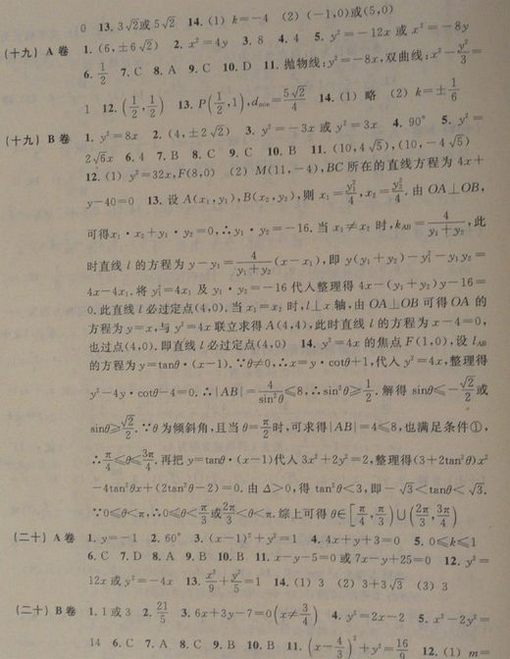 0 13. 3√2或5√2 14. (1) k=-4 (2) (-1,0)或(5,0)
(十九) A卷 1. (6,±6√2) 2. x²=4y 3. 8 4. 4 5. y²=-12x 或 x²=-8y
6. 1/2 7. C 8. A 9. C 10. D 11. 抛物线:y²=-8x,双曲线:x²-y²/3=
1 12. (1/2,1/2) 13. P(1/2,1),dmin=5√2/4 14. (1) 略 (2) k=±1/6
(十九) B卷 1. y²=8x 2. (4,±2√2) 3. y²=-3x 或 y²=3x 4. 90° 5. y²=
2√6x 6. 4 7. B 8. C 9. C 10. B 11. (10,4√5),(10,-4√5)
12. (1) y²=32x,F(8,0) (2) M(11,-4),BC 所在的直线方程为 4x+
y-40=0 13. 设 A(x₁,y₁),B(x₂,y₂),则 x₁=y₁²/4,x₂=y₂²/4. 由 OA⊥OB,
可得x₁·x₂+y₁·y₂=0,∴y₁·y₂=-16. 当 x₁≠x₂ 时,kAB=4/(y₁+y₂),此
时直线 l 的方程为 y-y₁=4/(y₁+y₂)(x-x₁),即 y(y₁+y₂)-y₁²-y₁y₂=
4x-4x₁, 将 y₁²=4x₁ 及 y₁·y₂=-16 代入整理得 4x-(y₁+y₂)y-16=
0. 此直线 l 必过定点(4,0). 当 x₁=x₂ 时,l⊥x 轴,由 OA⊥OB 可得 OA 的
方程为 y=x,与 y²=4x 联立求得 A(4,4),此时直线 l 的方程为 x-4=0,
也过点(4,0). 即直线 l 必过定点(4,0) 14. y²=4x 的焦点 F(1,0),设 lAB
的方程为 y=tanθ·(x-1). ∵θ≠0,∴x=y·cotθ+1,代入 y²=4x,整理得
y²-4y·cotθ-4=0. ∴|AB|=4/sin²θ≤8,∴sin²θ≥1/2. 解得 sinθ≤-√2/2或
sinθ≥√2/2. ∵θ 为倾斜角,且当 θ=π/2时,可求得|AB|=4≤8,也满足条件①,
∴π/4≤θ≤3π/4. 再把 y=tanθ·(x-1)代入 3x²+2y²=2,整理得(3+2tan²θ)x²
-4tan²θx+(2tan²θ-2)=0. 由 Δ>0,得 tan²θ<3,即-√3<tanθ<√3.
∵0≤θ<π,∴0≤θ<π/3或2π/3<θ<π. 综上可得 θ∈[π/4,π/3)∪(2π/3,3π/4]
(二十) A卷 1. y=-1 2. 60° 3. (x-1)²+y²=1 4. 4x+y+3=0 5. 0≤k≤1
6. C 7. D 8. A 9. B 10. B 11. x-y-5=0或 7x-y+25=0 12. y²=
12x 或 y²=-4x 13. x²/9+y²/5=1 14. (1) 3 (2) 3+3√3 (3) 3
(二十) B卷 1. 1 或 3 2. 21/5 3. 6x+3y-7=0(x≠3/4) 4. y²=2x-2 5. x²-2y²=
14 6. C 7. A 8. C 9. B 10. B 11. (x-4/3)²+y²=16/9 12. (1) m=